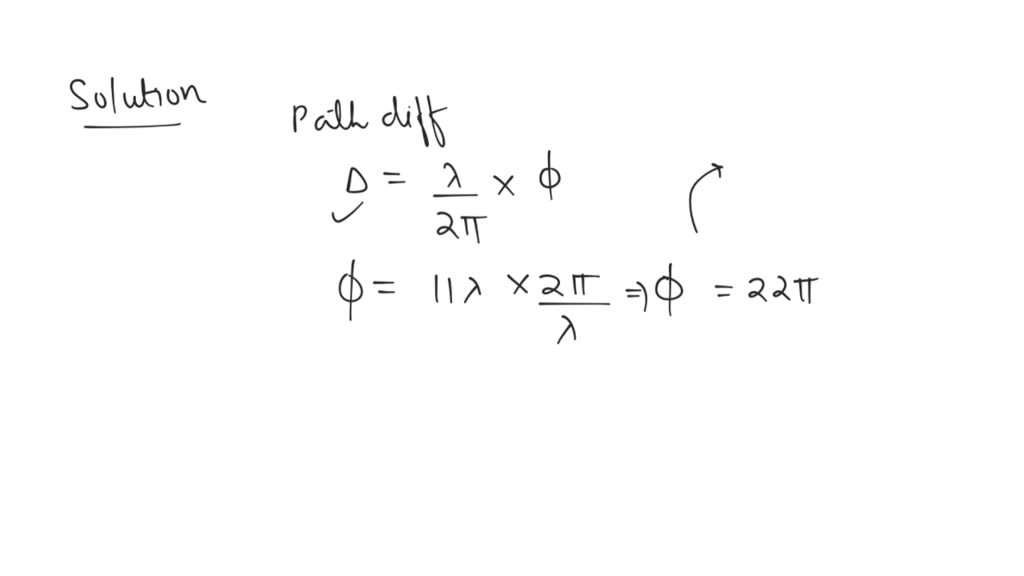 Solution
Path diff
Δ = λ/2π × ϕ
ϕ = 11λ × 2π/λ ⇒ ϕ = 22π